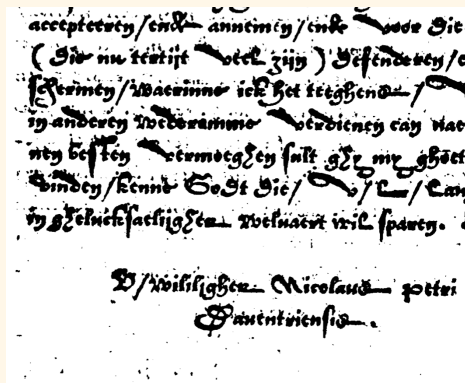 accepteeren/ende annemen/ende voor die
(die nu tertijt veel zijn) defenderen/e
schermen/Waerinne ick het teeghens
in anderen Wederomme verdienen can nae
nen besten vermoeghen sult ghy my ghoet
vinden/kenne Godt die/V/L/Lan
in ghelucksaelijgher welvaert wil sparen.
V/Williligher Nicolaus petri
Daventriensis.